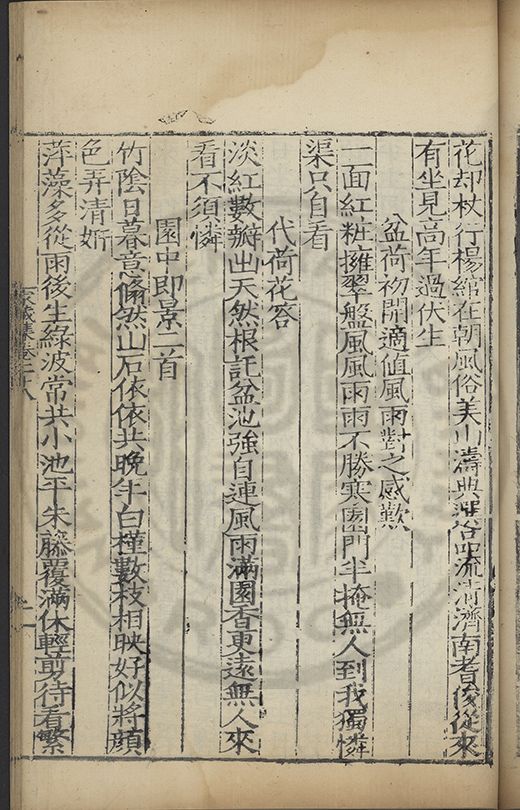 花却杖行楊綰在朝風俗美山濤典選品流清濟南耆俊從來
有坐見高年過伏生
盆荷初開適値風雨對之感歎
一面紅粧擁翠盤風風雨雨不勝寒園門半掩無人到我獨憐
渠只自看
代荷花答
淡紅數瓣出天然根託盆池強自連風雨滿園香更遠無人來
看不須憐
園中即景二首
竹陰日暮意翛然山石依依共晚年白槿數枝相映好似將顔
色弄清妍
萍藻多從雨後生綠波常共小池平朱藤覆滿休輕剪待看繁
集卷二十八